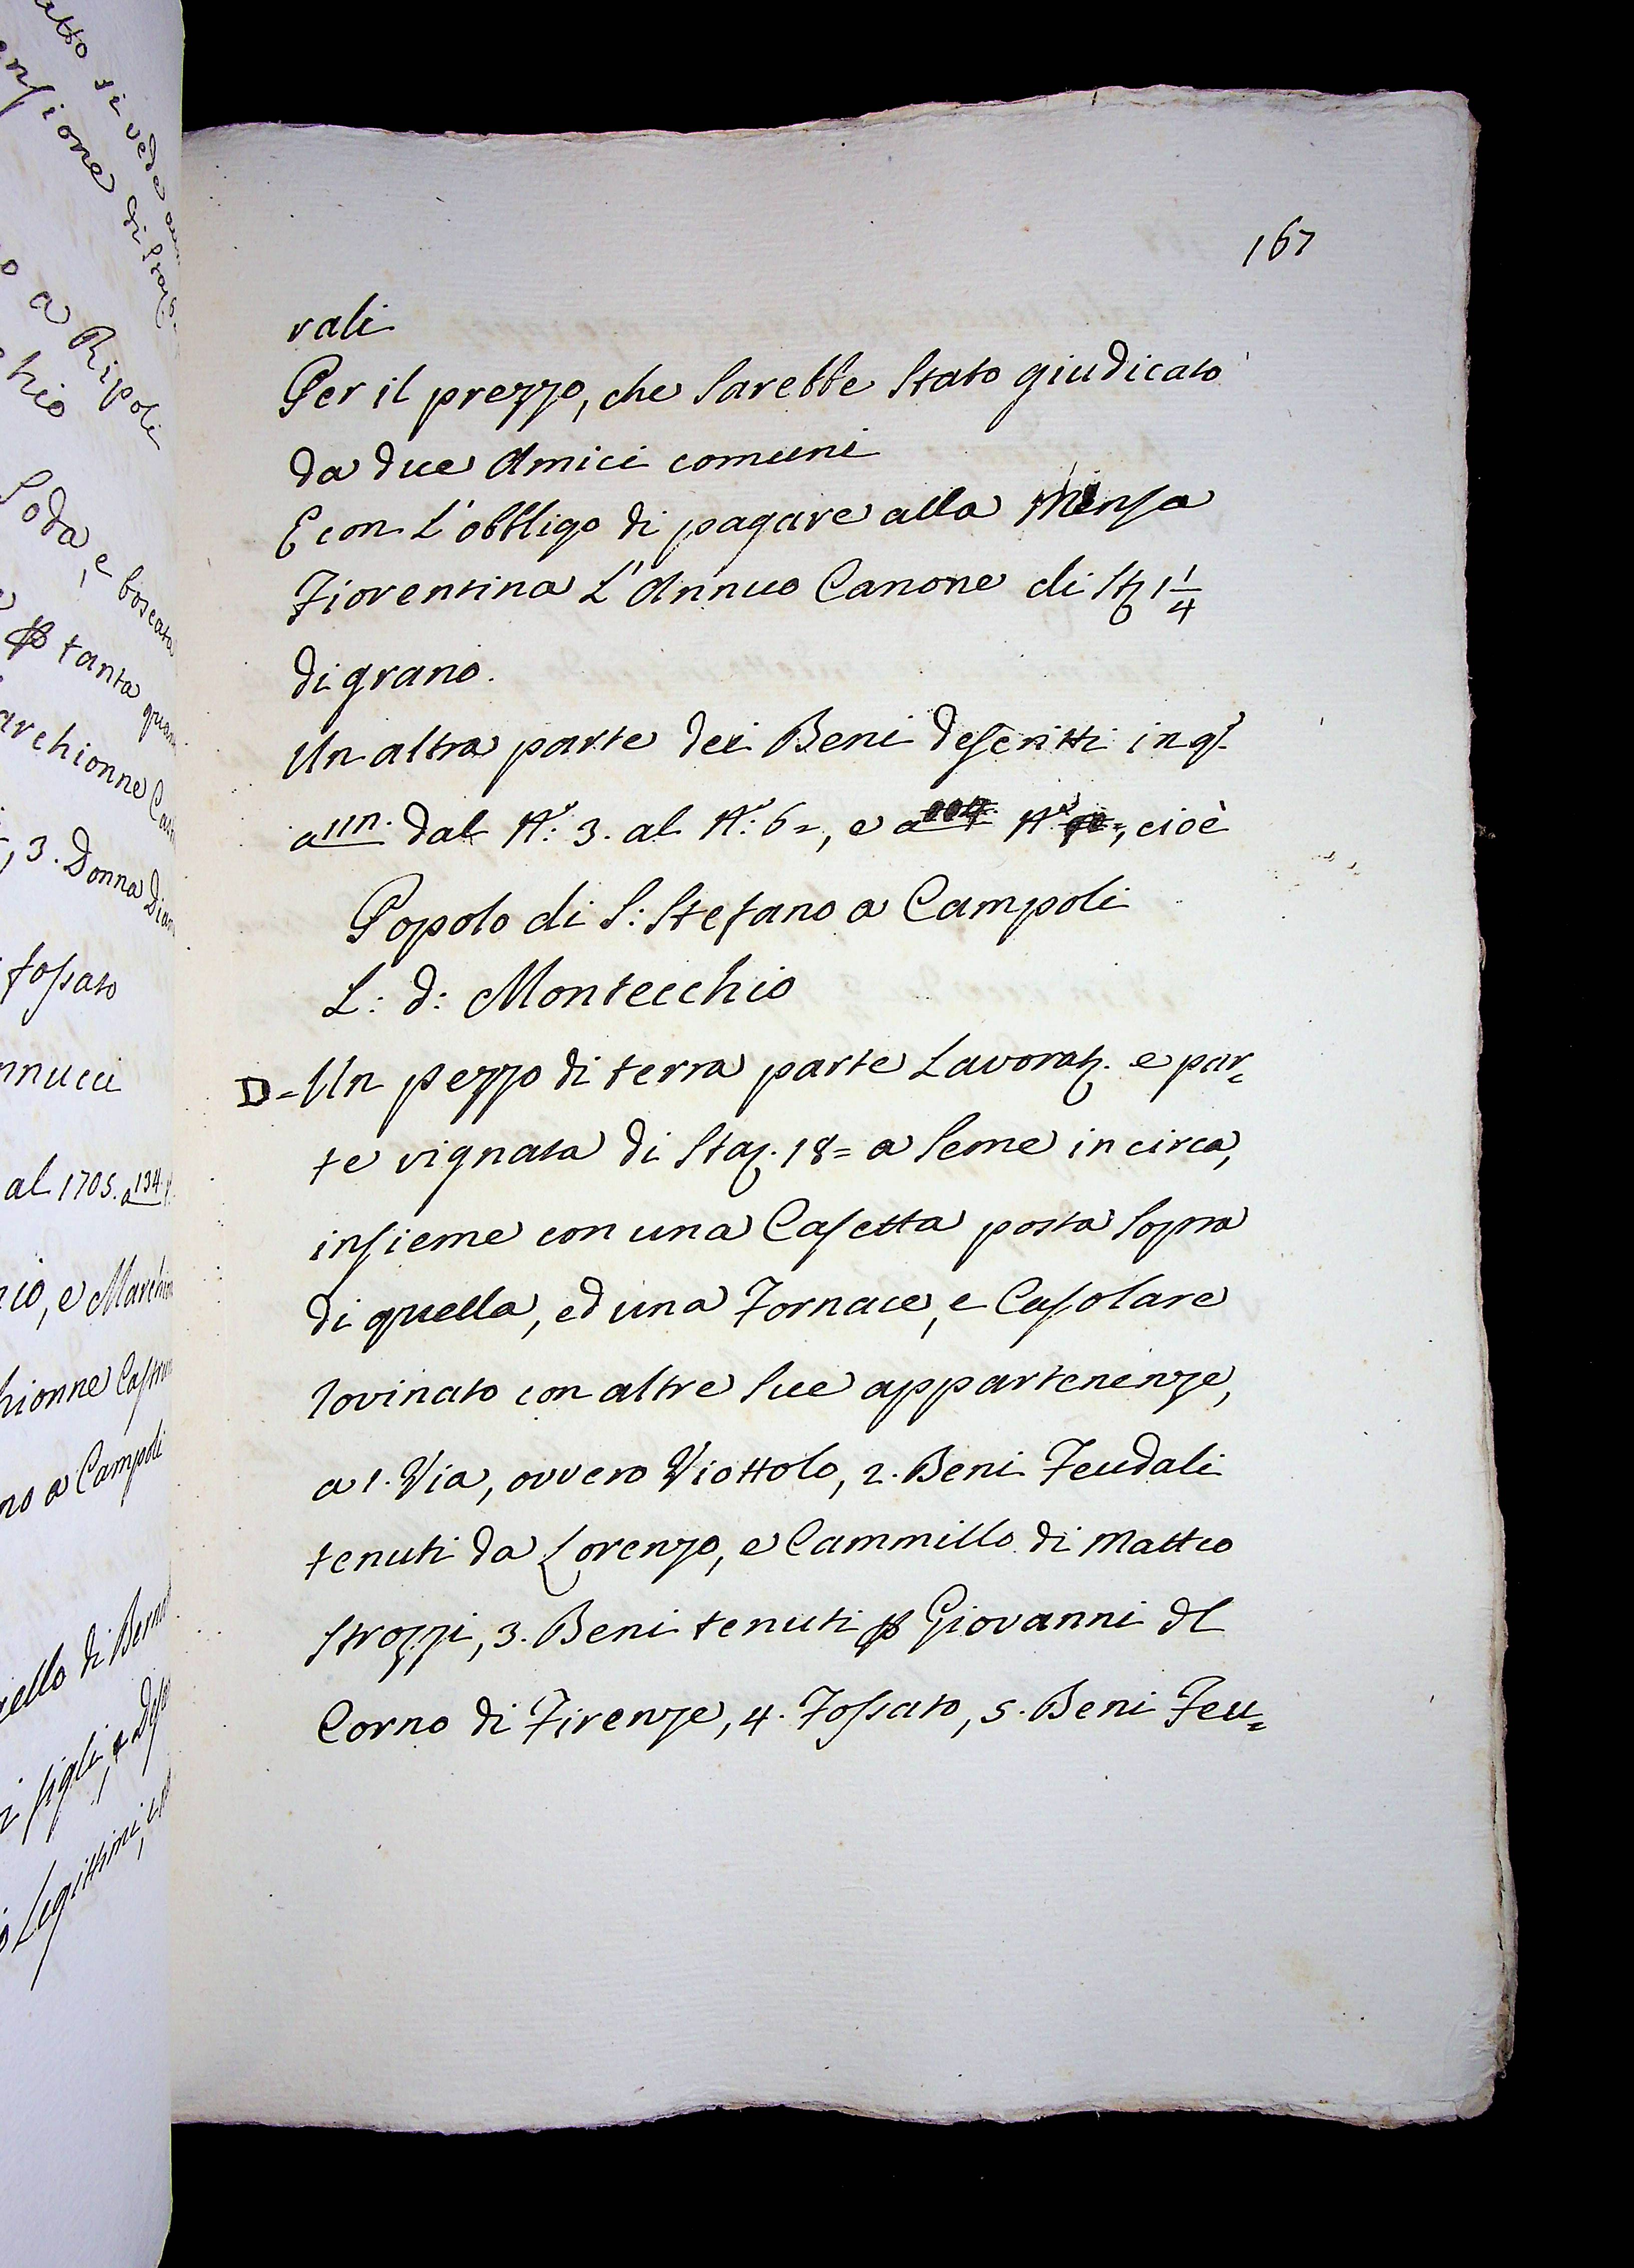 167
rali
Per il prezzo, che sarebbe stato giudicato
da due Amici comuni
E con L'obbligo di pagare alla Mensa
Fiorentina L'Annuo Canone di St 1 1/4
di grano.
Un altra parte dei Beni descritti in q.
a 111. dal N.° 3. al N.° 6=, e a N.° cioè
Popolo di S: Stefano a Campoli
L: d: Montecchio
D= Un pezzo di terra parte Lavorat. e par=
te vignata di Staj. 18= a seme in circa,
insieme con una Casetta posta sopra
di quella, ed una Fornace, e Casolare
rovinato con altre sue appartenenze,
a 1. Via, ovvero Viottolo, 2. Beni Feudali
tenuti da Lorenzo, e Cammillo di Matteo
Strozzi, 3. Beni tenuti p Giovanni dl
Corno di Firenze, 4. Fossato, 5. Beni Feu=
atto si vede
a Ripoli
Soda, e boscata
p tanta
archionne
, 3. Donna
fossato
nnucci
al 1705. a 134
io, e
hionne
no a Campoli
ello di
figli, e
Legittimi,